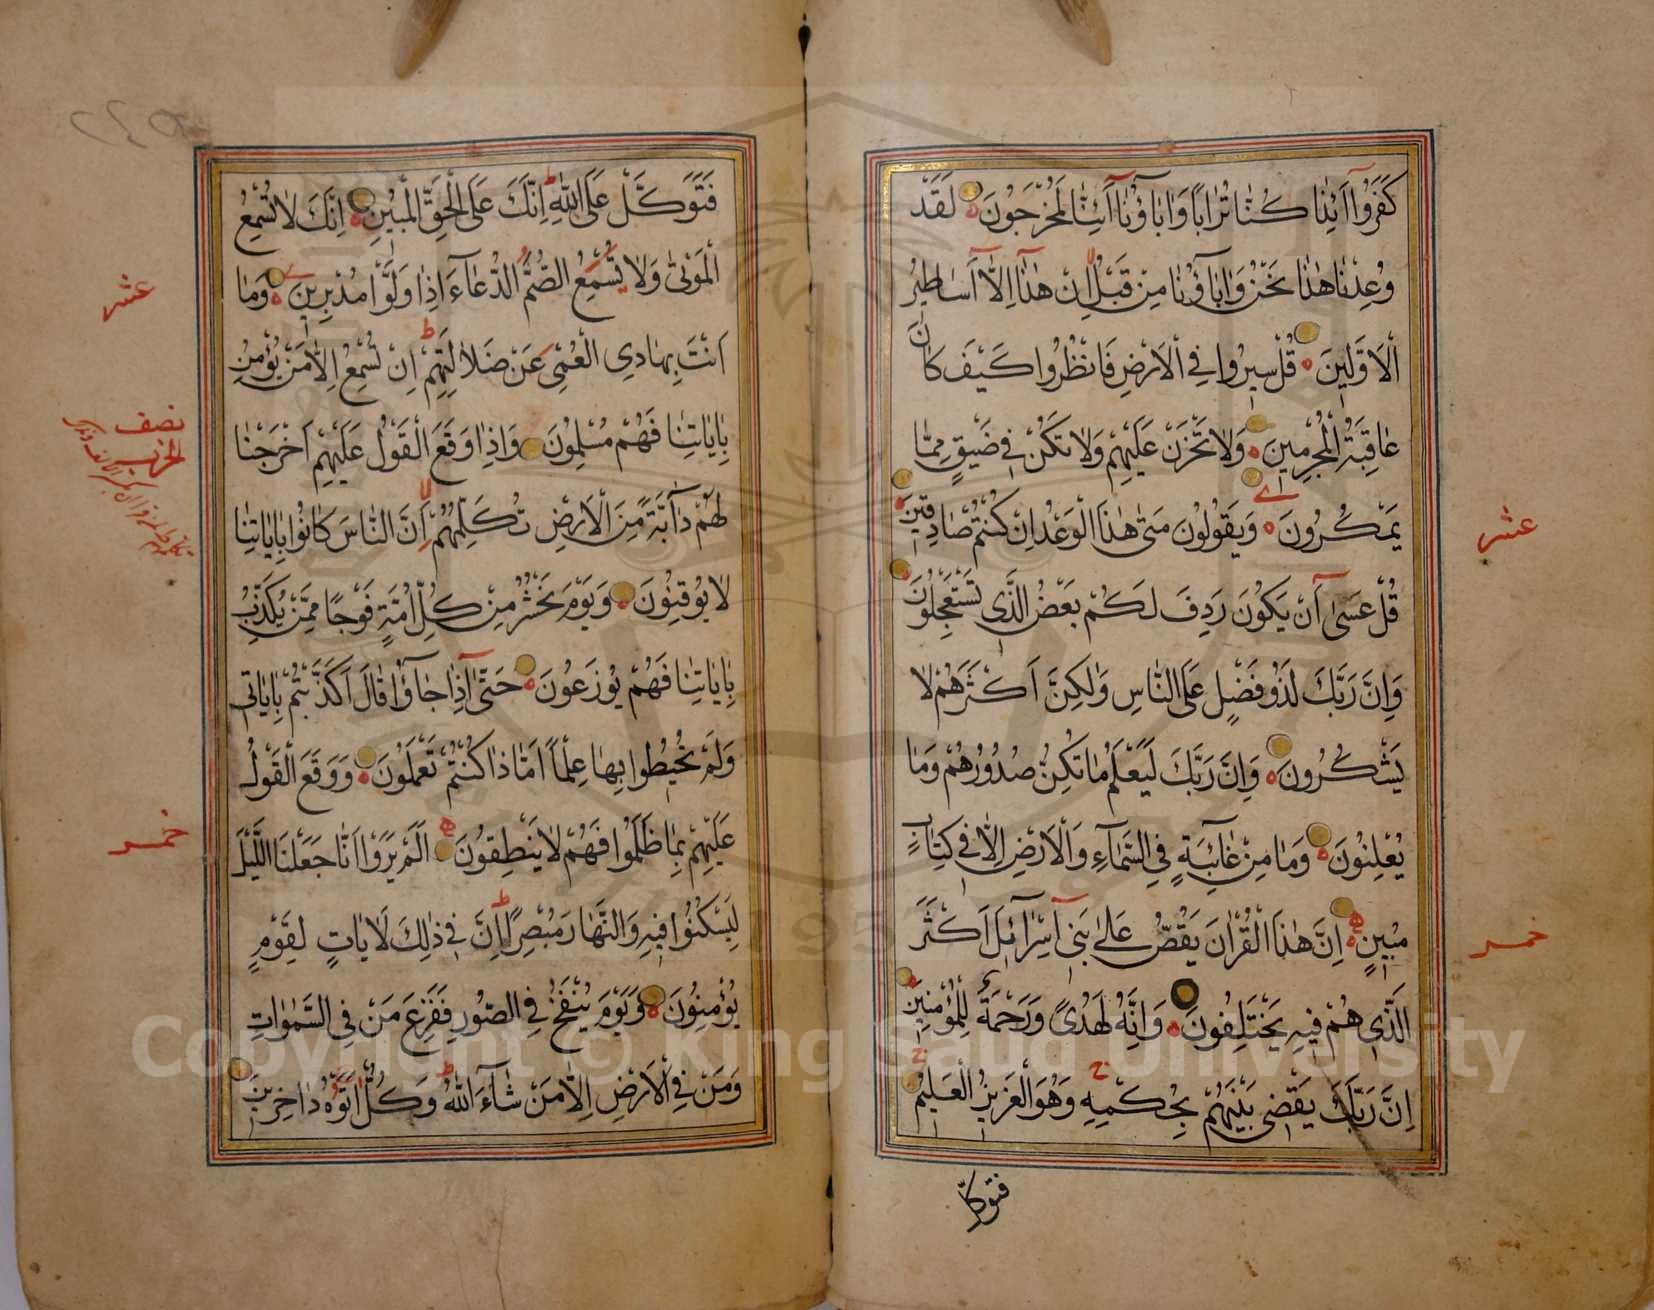 كَفَرُوا اَئِذَا كُنَّا تُرَابًا وَاٰبَاؤُنَا اَئِنَّا لَمُخْرَجُونَ لَقَدْ
وُعِدْنَا هٰذَا نَحْنُ وَاٰبَاؤُنَا مِنْ قَبْلُ اِنْ هٰذَا اِلَّا اَسَاطِيرُ
الْاَوَّلِينَ قُلْ سِيرُوا فِي الْاَرْضِ فَانْظُرُوا كَيْفَ كَانَ
عَاقِبَةُ الْمُجْرِمِينَ وَلَا تَحْزَنْ عَلَيْهِمْ وَلَا تَكُنْ فِي ضَيْقٍ مِمَّا
يَمْكُرُونَ وَيَقُولُونَ مَتٰى هٰذَا الْوَعْدُ اِنْ كُنْتُمْ صَادِقِينَ
قُلْ عَسٰى اَنْ يَكُونَ رَدِفَ لَكُمْ بَعْضُ الَّذِي تَسْتَعْجِلُونَ
وَاِنَّ رَبَّكَ لَذُو فَضْلٍ عَلَى النَّاسِ وَلٰكِنَّ اَكْثَرَهُمْ لَا
يَشْكُرُونَ وَاِنَّ رَبَّكَ لَيَعْلَمُ مَا تُكِنُّ صُدُورُهُمْ وَمَا
يُعْلِنُونَ وَمَا مِنْ غَائِبَةٍ فِي السَّمَاءِ وَالْاَرْضِ اِلَّا فِي كِتَابٍ
مُبِينٍ اِنَّ هٰذَا الْقُرْاٰنَ يَقُصُّ عَلٰى بَنِي اِسْرَائِلَ اَكْثَرَ
الَّذِي هُمْ فِيهِ يَخْتَلِفُونَ وَاِنَّهُ لَهُدًى وَرَحْمَةٌ لِلْمُؤْمِنِينَ
اِنَّ رَبَّكَ يَقْضِي بَيْنَهُمْ بِحُكْمِهِ وَهُوَ الْعَزِيزُ الْعَلِيمُ
فتوكل
عشر
خمس
فَتَوَكَّلْ عَلَى اللّٰهِ اِنَّكَ عَلَى الْحَقِّ الْمُبِينِ اِنَّكَ لَا تُسْمِعُ
الْمَوْتٰى وَلَا تُسْمِعُ الصُّمَّ الدُّعَاءَ اِذَا وَلَّوْا مُدْبِرِينَ وَمَا
اَنْتَ بِهَادِي الْعُمْيِ عَنْ ضَلَالَتِهِمْ اِنْ تُسْمِعُ اِلَّا مَنْ يُؤْمِنُ
بِاٰيَاتِنَا فَهُمْ مُسْلِمُونَ وَاِذَا وَقَعَ الْقَوْلُ عَلَيْهِمْ اَخْرَجْنَا
لَهُمْ دَابَّةً مِنَ الْاَرْضِ تُكَلِّمُهُمْ اِنَّ النَّاسَ كَانُوا بِاٰيَاتِنَا
لَا يُوقِنُونَ وَيَوْمَ نَحْشُرُ مِنْ كُلِّ اُمَّةٍ فَوْجًا مِمَّنْ يُكَذِّبُ
بِاٰيَاتِنَا فَهُمْ يُوزَعُونَ حَتّٰى اِذَا جَاؤُا قَالَ اَكَذَّبْتُمْ بِاٰيَاتِي
وَلَمْ تُحِيطُوا بِهَا عِلْمًا اَمَّا ذَا كُنْتُمْ تَعْمَلُونَ وَوَقَعَ الْقَوْلُ
عَلَيْهِمْ بِمَا ظَلَمُوا فَهُمْ لَا يَنْطِقُونَ اَلَمْ يَرَوْا اَنَّا جَعَلْنَا اللَّيْلَ
لِيَسْكُنُوا فِيهِ وَالنَّهَارَ مُبْصِرًا اِنَّ فِي ذٰلِكَ لَاٰيَاتٍ لِقَوْمٍ
يُؤْمِنُونَ وَيَوْمَ يُنْفَخُ فِي الصُّورِ فَفَزِعَ مَنْ فِي السَّمٰوَاتِ
وَمَنْ فِي الْاَرْضِ اِلَّا مَنْ شَاءَ اللّٰهُ وَكُلٌّ اَتَوْهُ دَاخِرِينَ
عشر
نصف
الحزب
خمس
Copyright © King Saud University
1957